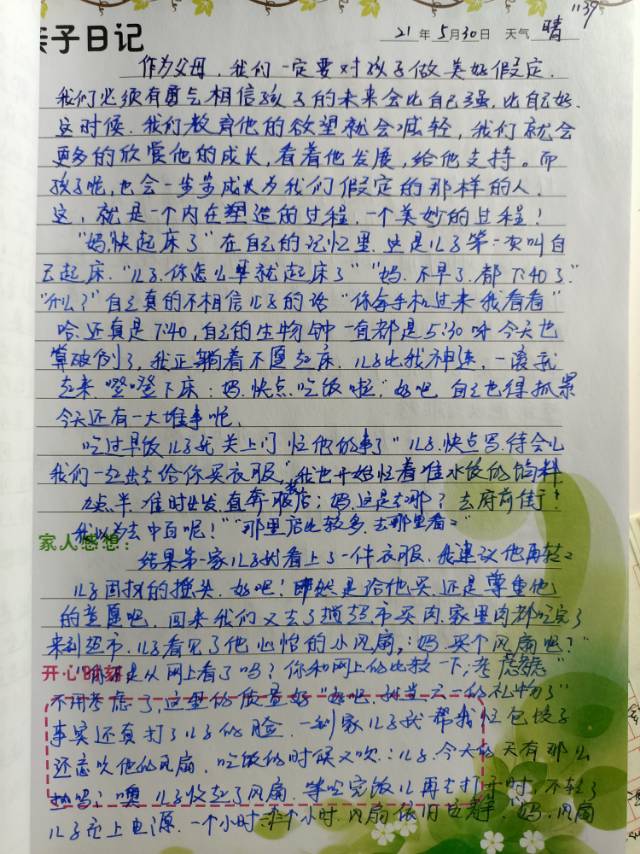 1139
亲子日记
21年5月30日 天气 晴
作为父母,我们一定要对孩子做美好假定.
我们必须有勇气相信孩子的未来会比自己强,比自己好.
这时候.我们教育他的欲望就会减轻,我们就会
更多的欣赏他的成长,看着他发展,给他支持。而
孩子呢,也会一步步成长为我们假定的那样的人.
这,就是一个内在塑造的过程,一个美妙的过程!
"妈,快起床了"在自己的记忆里.这是儿子第一次叫自
己起床."儿子.你怎么早就起床了""妈.不早了.都7:40了."
"什么?"自己真的不相信儿子的话"你拿手机过来我看看"
哈.还真是7:40,自己的生物钟一直都是5:30呀今天也
算破例了,我正躺着不愿起床.儿子比我神速,一滚就
起来.噔噔下床:妈.快点吃饭啦."好吧.自己也得抓紧
今天还有一大堆事呢.
吃过早饭儿子就关上门忙他的事了"儿子.快点写.待会儿
我们一起出去给你买衣服"我也开始忙着准水饺的馅料
九点半准时出发.直奔服装店:妈.这是去哪?去府前街!
我以为去中百呢!""那里店比较多.去那里看看"
家人感想:
结果第一家儿子就看上了一件衣服.我建议他再转转
儿子固执的摇头.好吧!既然是给他买.还是尊重他
的意愿吧.回来我们又去了趟超市买肉.家里肉都吃完了
来到超市.儿子看见了他心怡的小风扇,:妈.买个风扇吧?"
开心时刻
是从网上看了吗?你和网上的比较一下,考虑考虑"
不用考虑了,这里的质量好"好吧.就当六一的礼物了"
事实还真打了儿子的脸.一到家儿子就帮我忙包饺子
还喜吹他的风扇.吃饭的时候又吹.:儿子.今天的天有那么
热吗?噢.儿子收起了风扇.等吃完饭儿再去打开时,不转了
儿子充上电源.一个小时.半个小时.风扇依旧."妈.风扇